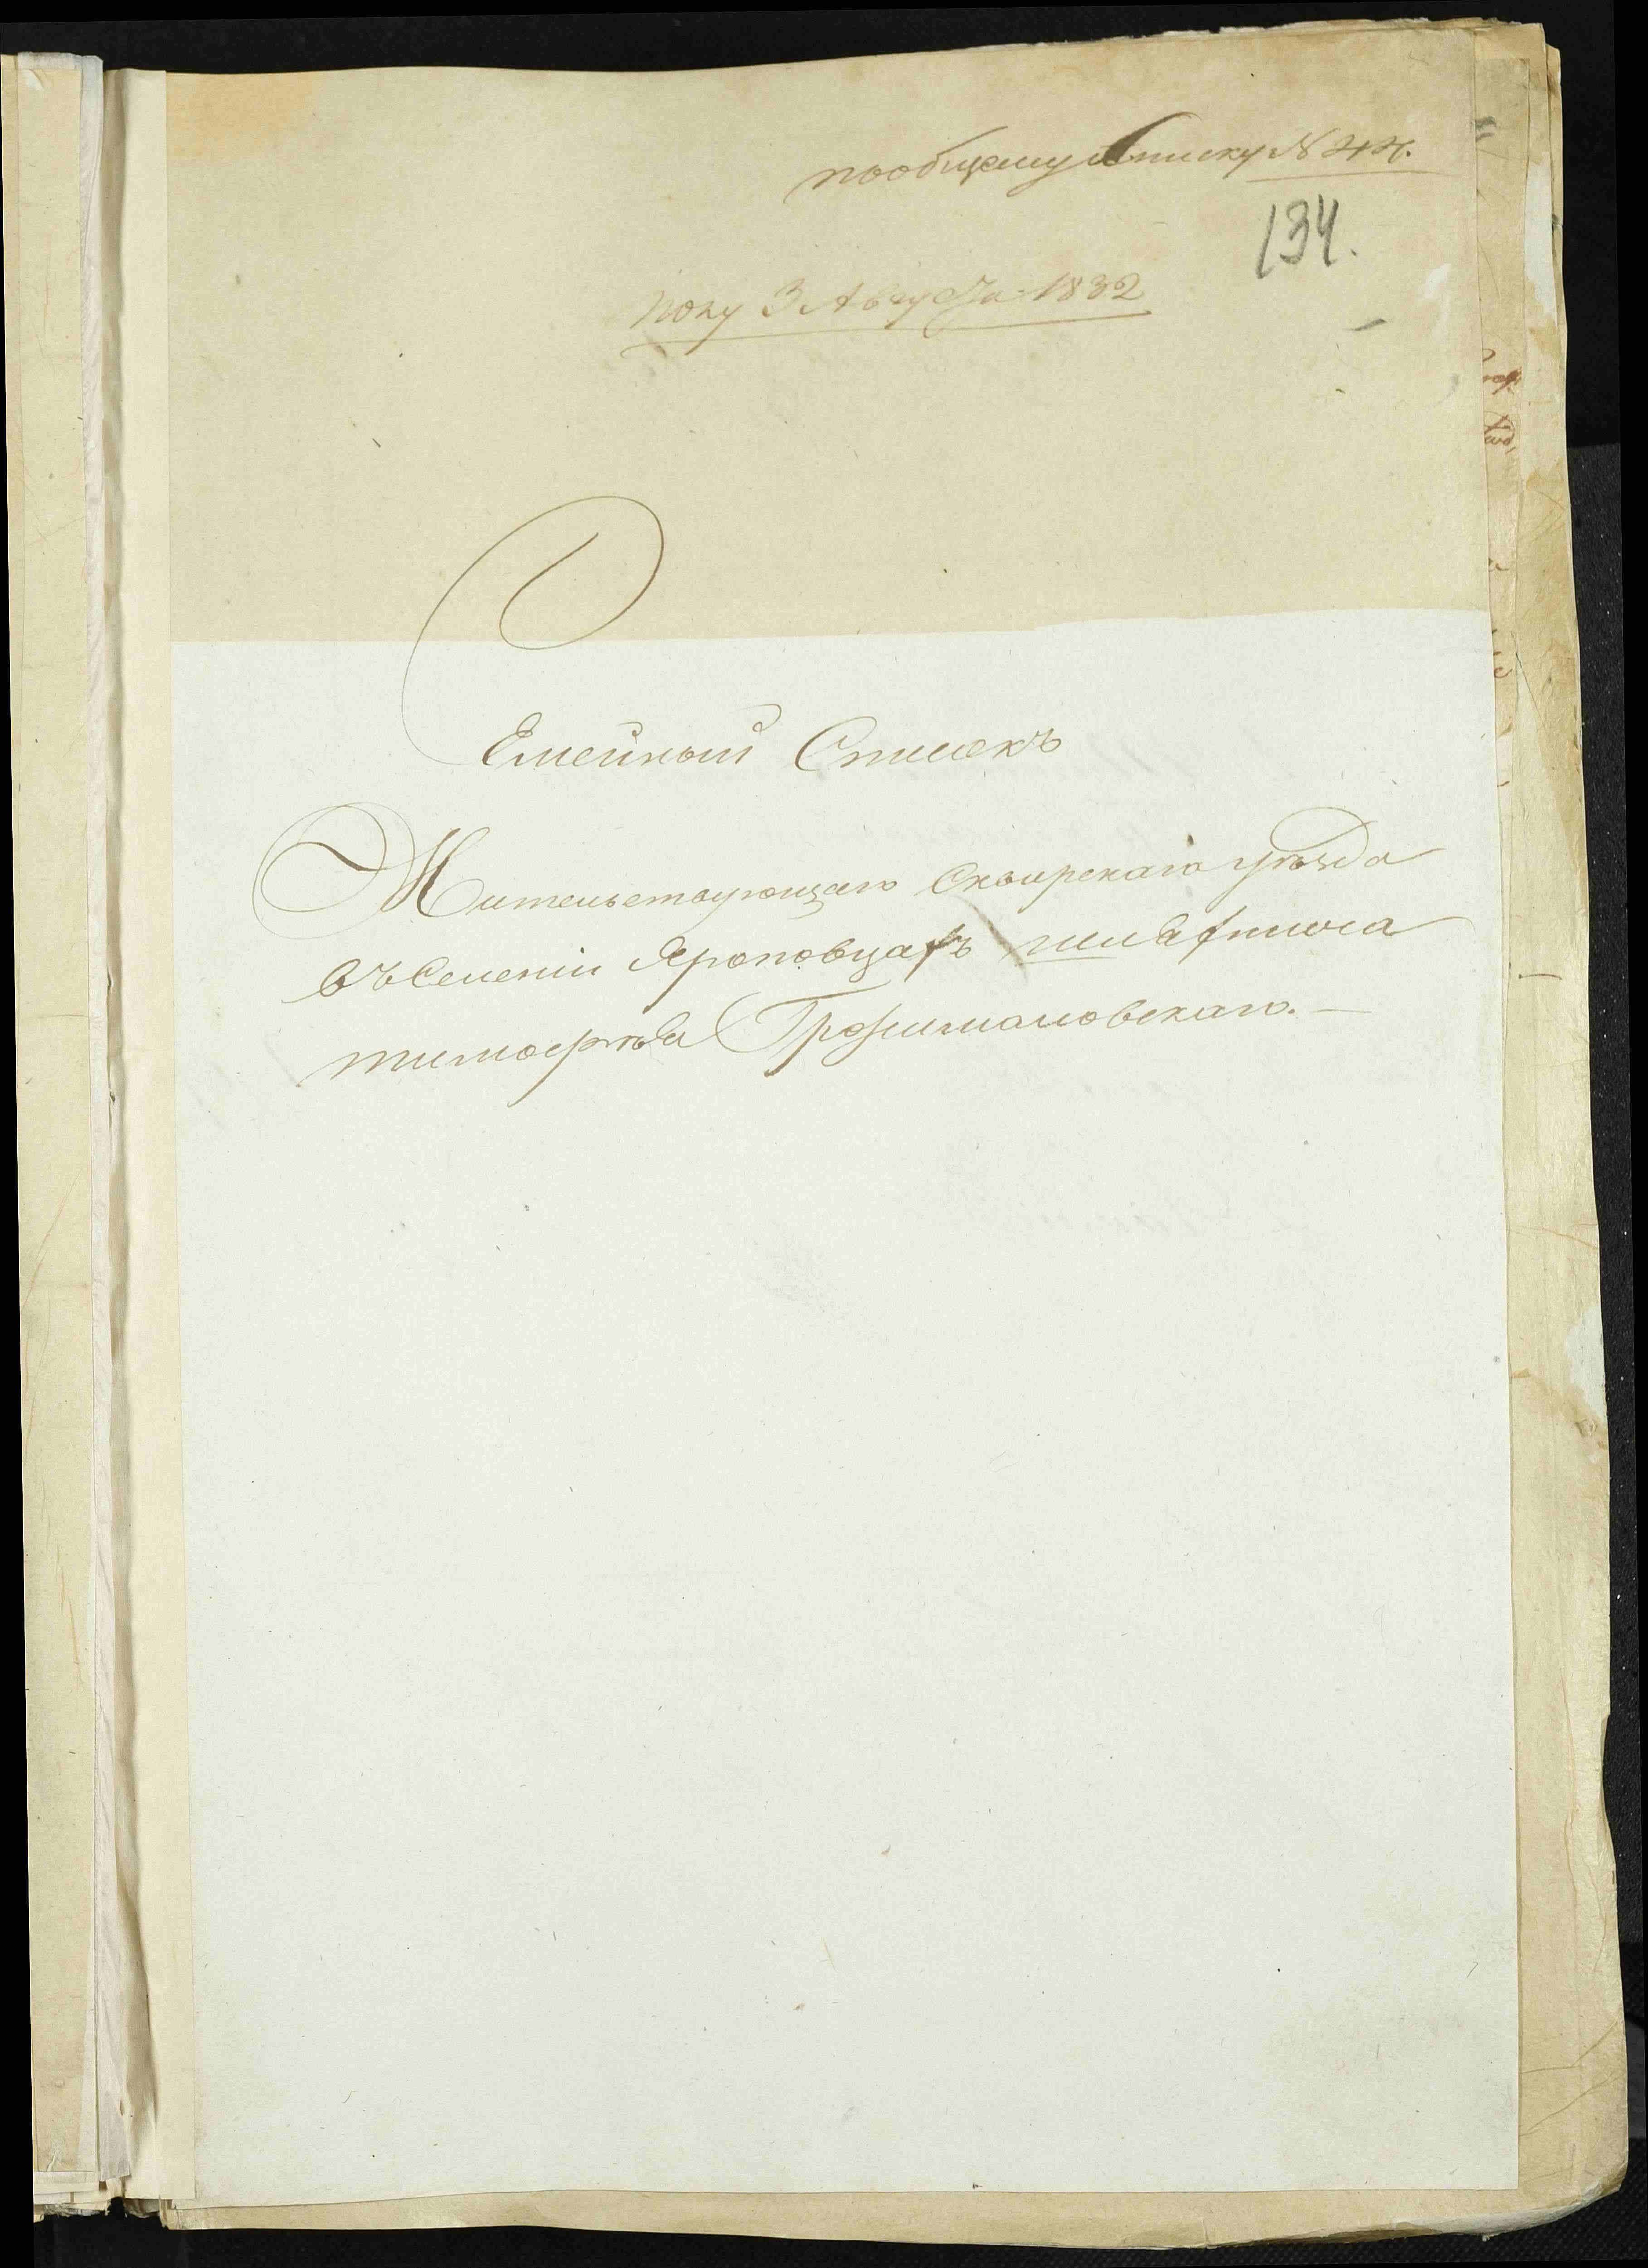 пообщему Списку N 44.
134.
Полу 3 Августа 1832
Семейный Списокъ
Жительствующаго Сквирскаго уѣзда
въ Селеніи Яроповцахъ шляхтича
тимофѣя Трохимановскаго. —